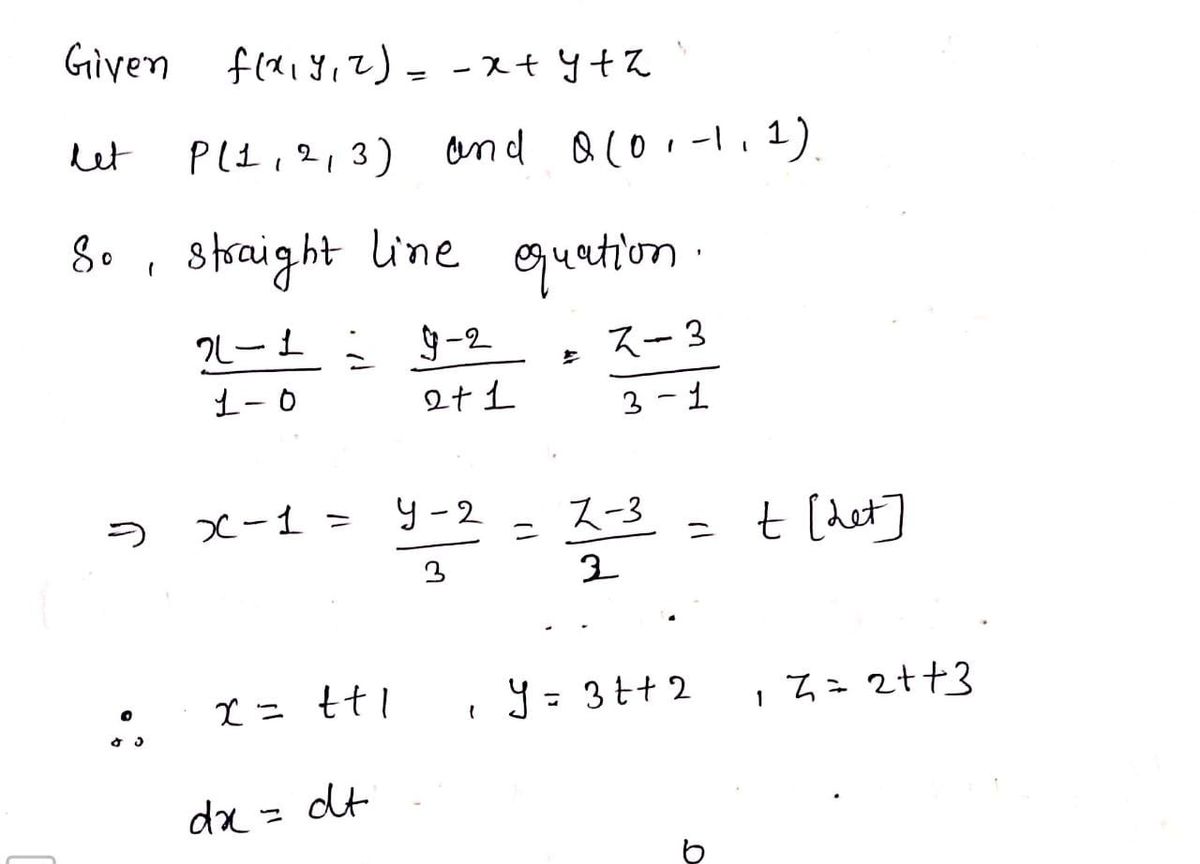 Given f(x, y, z) = -x + y + z
Let P(1, 2, 3) and Q(0, -1, 1).
So, straight line equation.
x-1 / 1-0 = y-2 / 2+1 = z-3 / 3-1
⇒ x-1 = y-2 / 3 = z-3 / 2 = t [Let]
∴ x = t+1 , y = 3t+2 , z = 2t+3
dx = dt